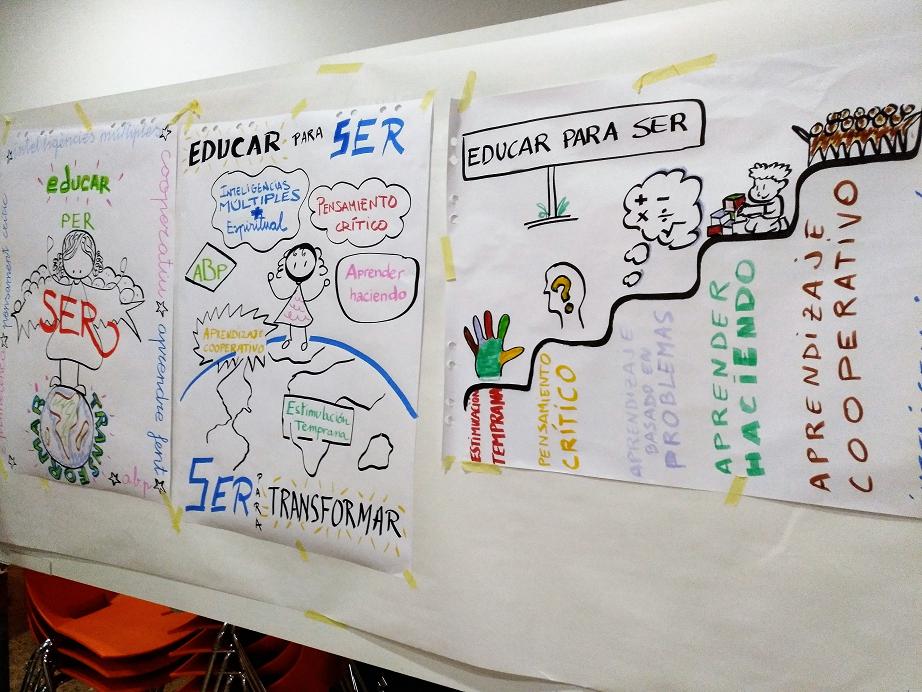 intel·ligències múltiples
educar
PER
SER
TRANSFORMAR
cooperatiu
aprendre fent
abp
pensament crític
EDUCAR PARA SER
INTELIGENCIAS
MÚLTIPLES
+
Espiritual
PENSAMIENTO
CRÍTICO
ABP
Aprender
haciendo
APRENDIZAJE
COOPERATIVO
Estimulación
Temprana
SER PARA TRANSFORMAR
EDUCAR PARA SER
+ -
× ÷
=
?
ESTIMULACIÓN
TEMPRANA
PENSAMIENTO
CRÍTICO
APRENDIZAJE
BASADO EN
PROBLEMAS
APRENDER
HACIENDO
APRENDIZAJE
COOPERATIVO